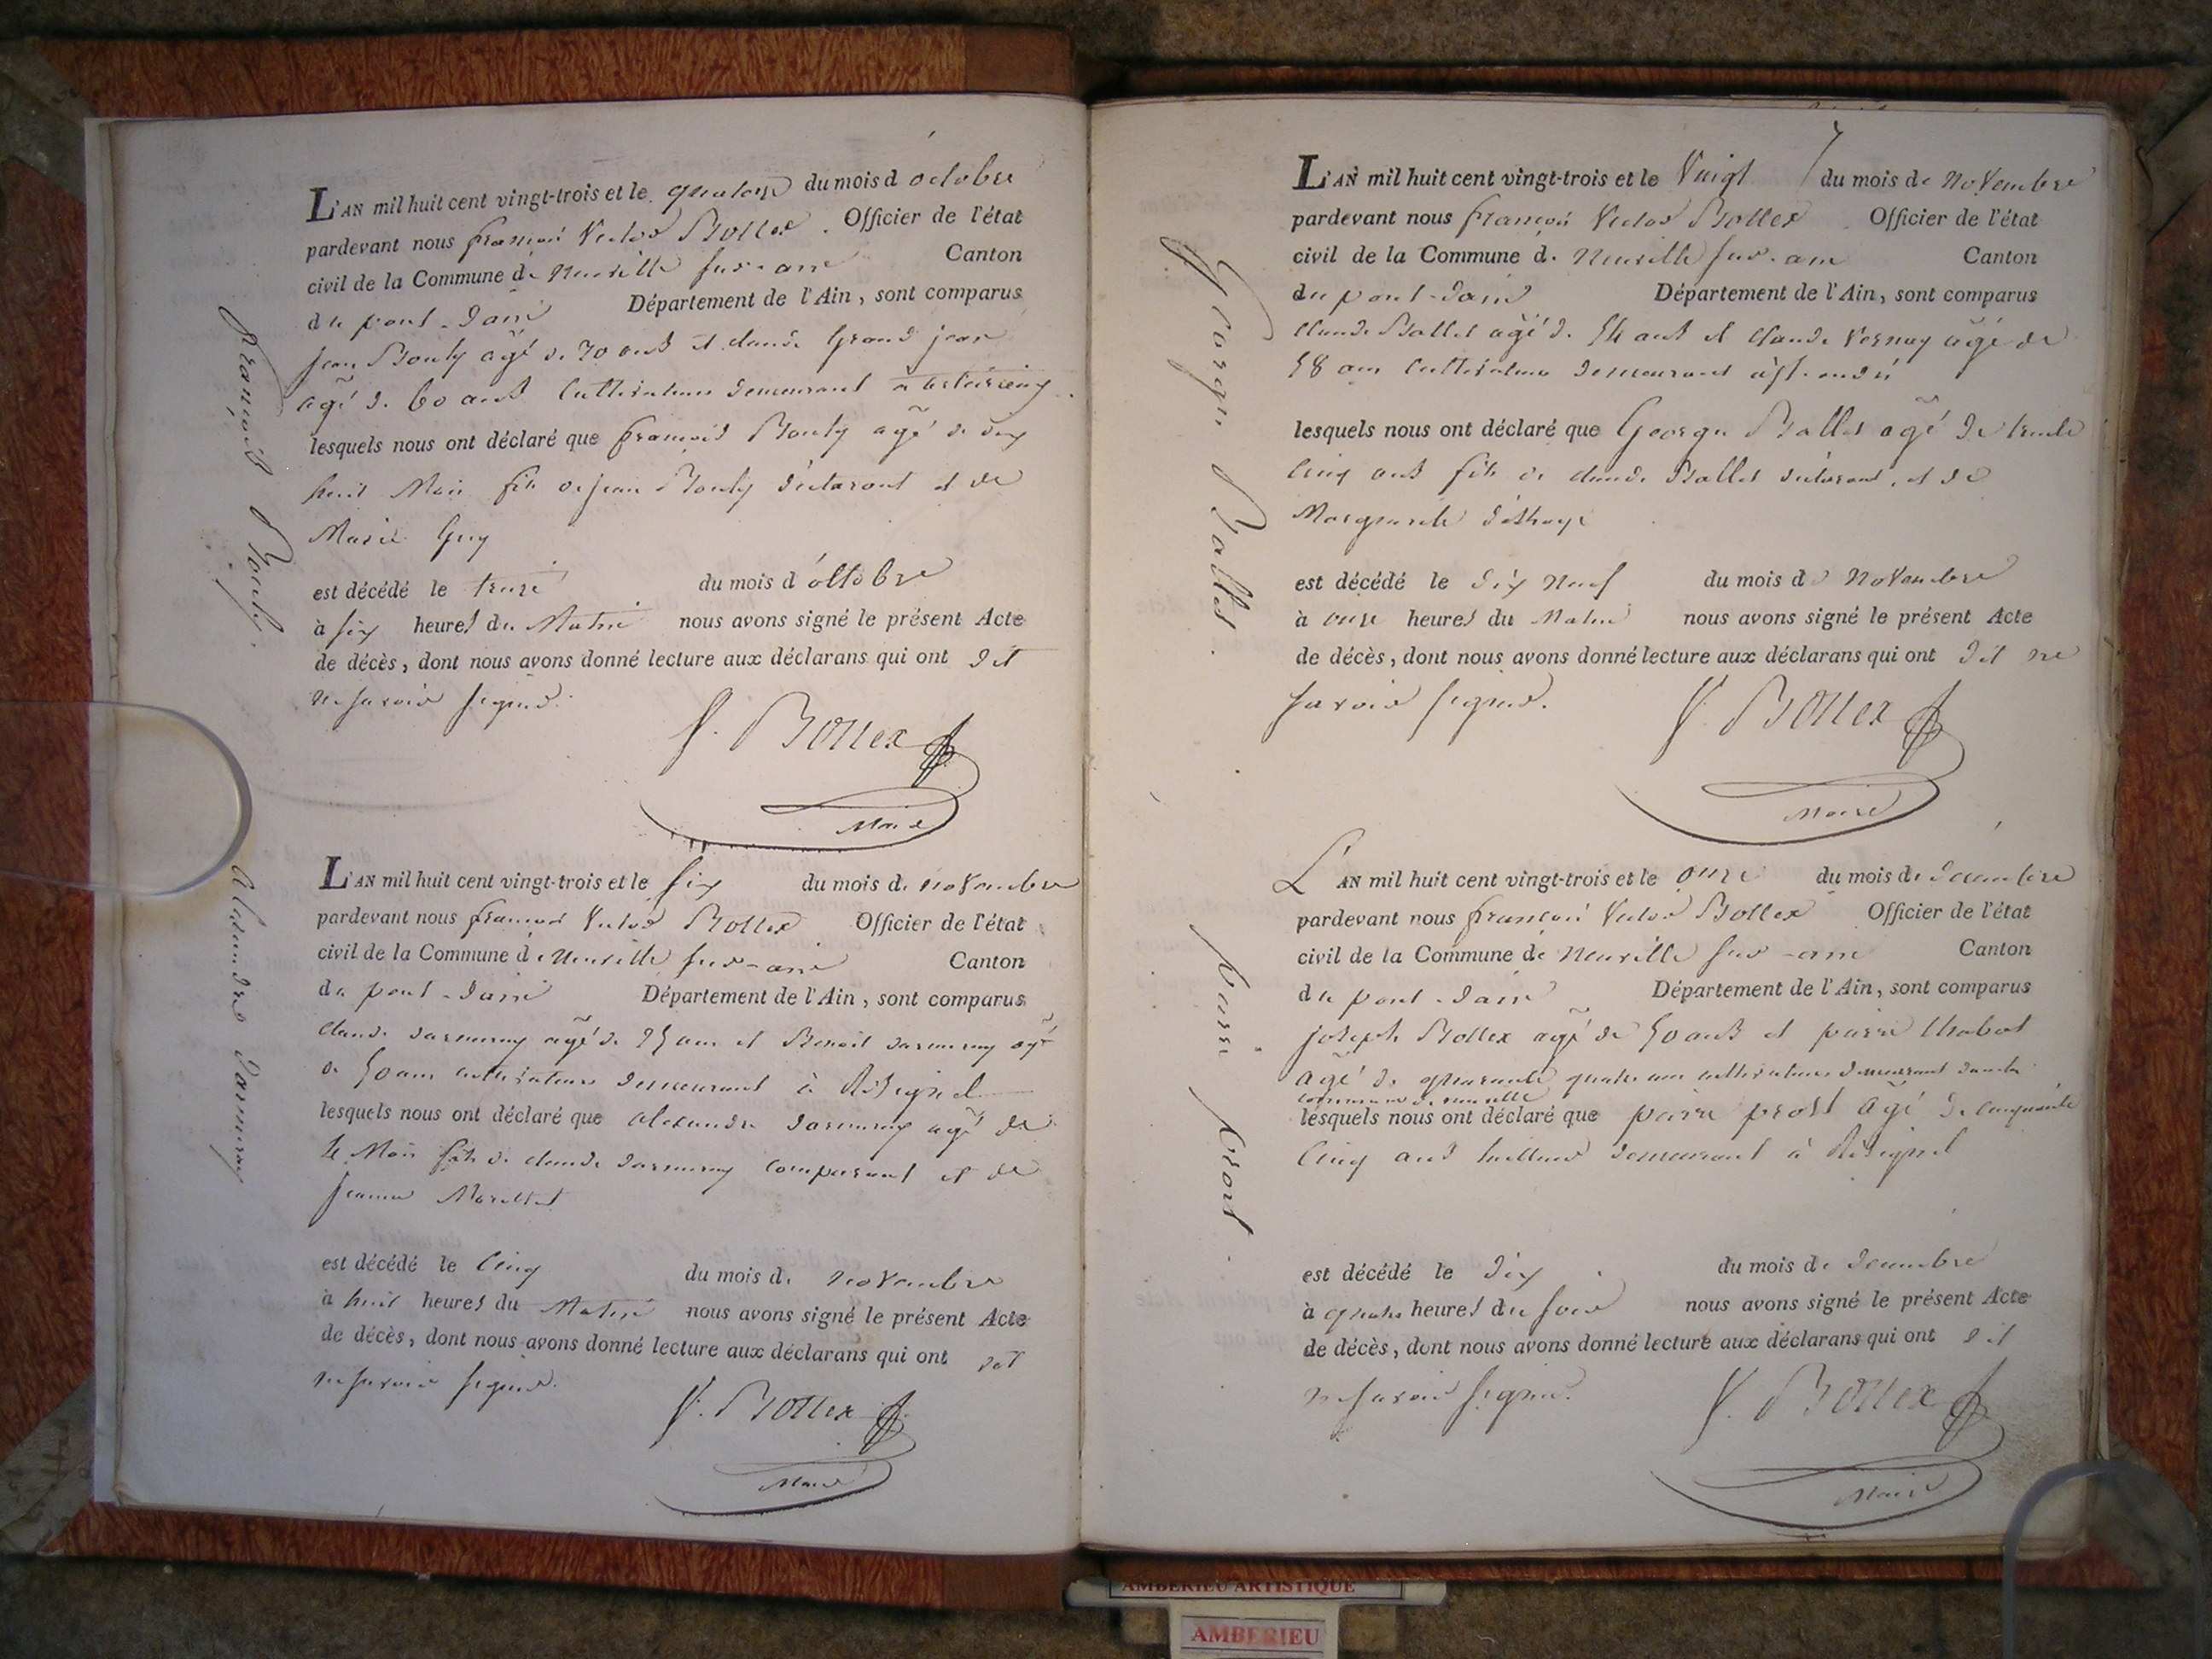 François Bouly.
L'AN mil huit cent vingt-trois et le quatorze du mois d'octobre
pardevant nous françois Victor Bollex. Officier de l'état
civil de la Commune de Neuville sur-ain Canton
du pont-dain Département de l'Ain, sont comparus
jean Bouly agé de 70 ans et claude Grand jean
agé de 60 ans Cultivateurs demeurant à
lesquels nous ont déclaré que françois Bouly agé de dix
huit Mois fils de jean Bouly déclarant et de
Marie Guy
est décédé le treize du mois d'octobre
à six heures du Matin nous avons signé le présent Acte
de décès, dont nous avons donné lecture aux déclarans qui ont dit
ne savoir signer.
V. Bollex
Maire
Alexandre Darmeray
L'AN mil huit cent vingt-trois et le six du mois de novembre
pardevant nous françois Victor Bollex Officier de l'état
civil de la Commune de Neuville sur-ain Canton
du pont-dain Département de l'Ain, sont comparus
claude darmeray agé de 25 ans et Benoit darmeray agé
de 50 ans cultivateurs demeurant à Résignel
lesquels nous ont déclaré que alexandre darmeray agé de
Mois fils de claude darmeray comparant et de
jeanne
est décédé le cinq du mois de novembre
à huit heures du Matin nous avons signé le présent Acte
de décès, dont nous avons donné lecture aux déclarans qui ont dit
ne savoir signer.
V. Bollex
Maire
George Ballet.
L'AN mil huit cent vingt-trois et le Vingt du mois de novembre
pardevant nous françois Victor Bollex Officier de l'état
civil de la Commune de Neuville sur-ain Canton
du pont-dain Département de l'Ain, sont comparus
claude Ballet agé de ans et claude Vernay agé de
58 ans Cultivateurs demeurant à St. andré
lesquels nous ont déclaré que George Ballet agé de trente
cinq ans fils de claude Ballet déclarant, et de
Marguerite
est décédé le dix neuf du mois de Novembre
à onze heures du Matin nous avons signé le présent Acte
de décès, dont nous avons donné lecture aux déclarans qui ont dit ne
savoir signer.
V. Bollex
Maire
pierre prost.
L'AN mil huit cent vingt-trois et le onze du mois de décembre
pardevant nous françois Victor Bollex Officier de l'état
civil de la Commune de Neuville sur-ain Canton
du pont-dain Département de l'Ain, sont comparus
joseph Bollex agé de 50 ans et pierre Chabot
agé de quarante quatre ans cultivateurs demeurant dans la
commune de neuville
lesquels nous ont déclaré que pierre prost agé de cinquante
cinq ans tailleur demeurant à Résignel
est décédé le dix du mois de décembre
à quatre heures du soir nous avons signé le présent Acte
de décès, dont nous avons donné lecture aux déclarans qui ont dit
ne savoir signer.
V. Bollex
Maire
AMBERIEU ARTISTIQUE
AMBERIEU